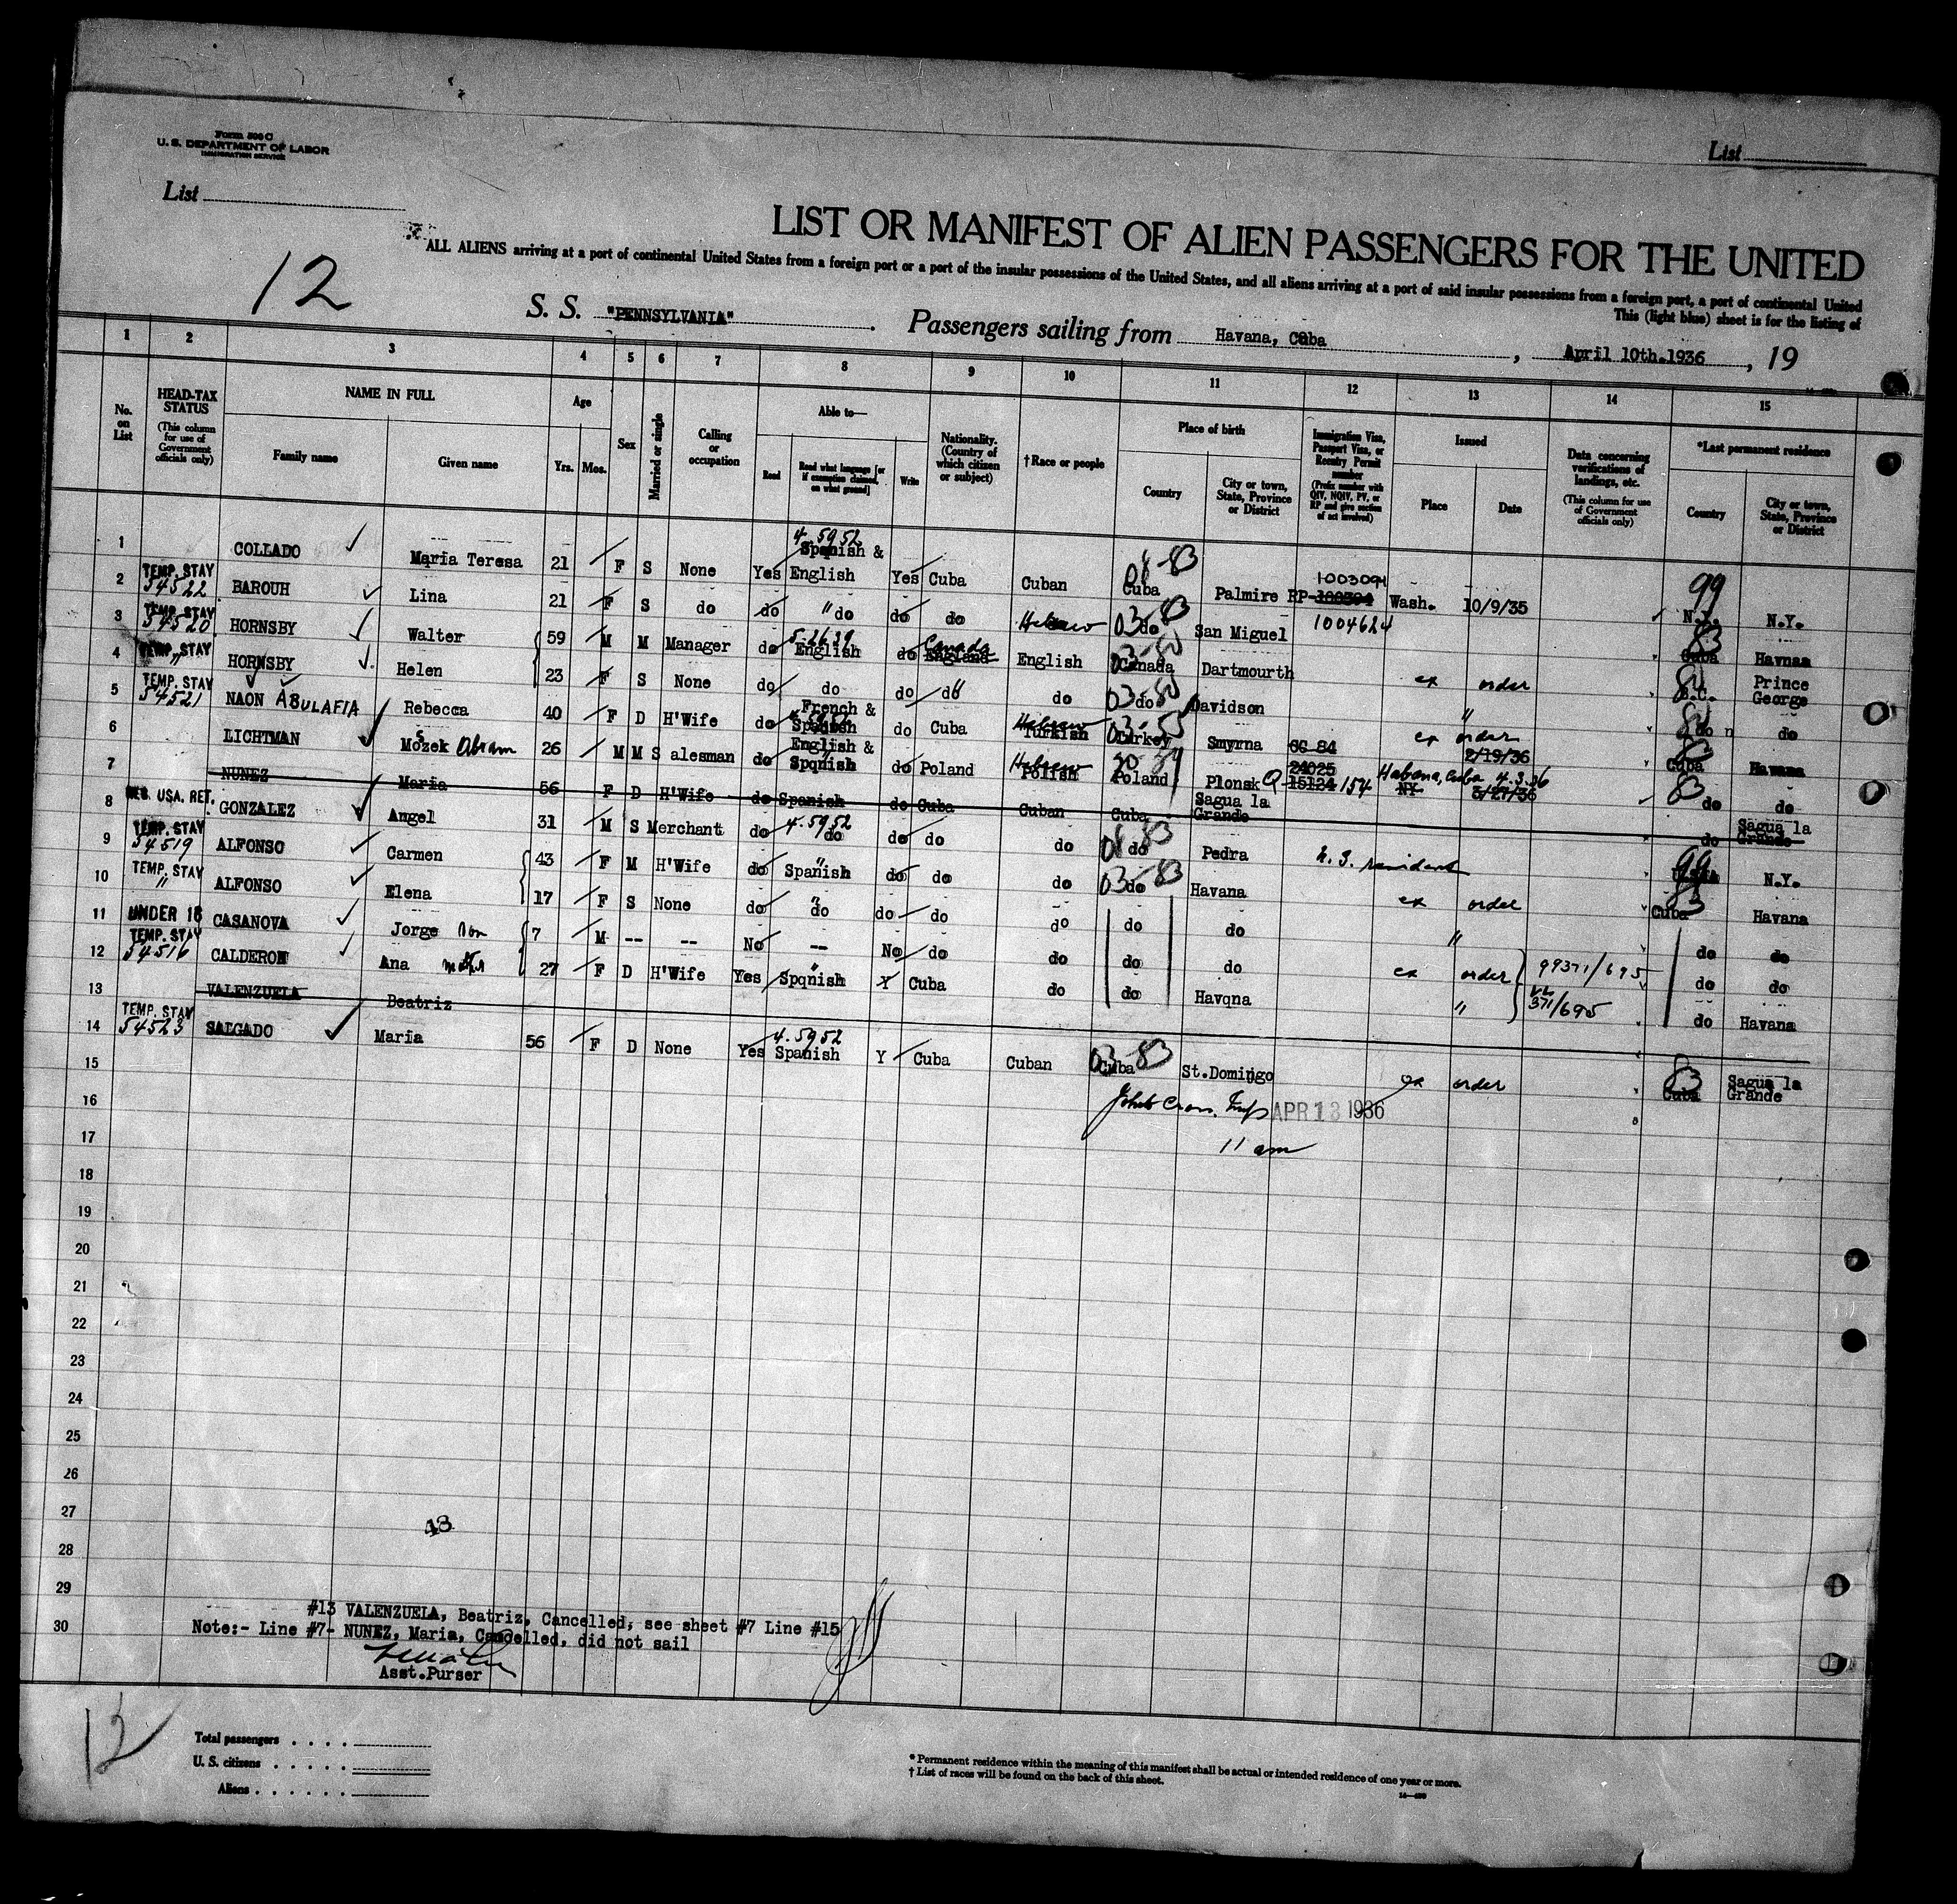 Form 500 C
U. S. DEPARTMENT OF LABOR
IMMIGRATION SERVICE
List
List
LIST OR MANIFEST OF ALIEN PASSENGERS FOR THE UNITED
ALL ALIENS arriving at a port of continental United States from a foreign port or a port of the insular possessions of the United States, and all aliens arriving at a port of said insular possessions from a foreign port, a port of continental United
This (light blue) sheet is for the listing of
12
S. S. "PENNSYLVANIA" . Passengers sailing from Havana, Cuba , April 10th.1936 , 19
1 2 3 4 5 6 7 8 9 10 11 12 13 14 15
No. on List
HEAD-TAX STATUS (This column for use of Government officials only)
NAME IN FULL
Family name
Given name
Age
Yrs. Mos.
Sex
Married or single
Calling or occupation
Able to—
Read
Read what language [or if exemption claimed, on what ground]
Write
Nationality. (Country of which citizen or subject)
† Race or people
Place of birth
Country
City or town, State, Province or District
Immigration Visa, Passport Visa, or Reentry Permit number (Prefix number with QIV, NQIV, PV, or RP and give section of act involved)
Issued
Place
Date
Data concerning verifications of landings, etc. (This column for use of Government officials only)
*Last permanent residence
Country
City or town, State, Province or District
1 COLLADO Maria Teresa 21 F S None Yes 4.5952 Spanish & English Yes Cuba Cuban Cuba Palmire RP-1003094 Wash. 10/9/35 99 N.Y. N.Y.
2 TEMP. STAY 54522 BAROUH Lina 21 F S do do " do do do Hebrew 03-83 do San Miguel 1004624 83 Cuba Havnaa
3 TEMP. STAY 54520 HORNSBY Walter 59 M M Manager do 5.26.39 English do Canada England English Canada Dartmourth ex order B.C. Prince George
4 TEMP. STAY " HORNSBY Helen 23 F S None do do do do do 03-80 do Davidson " do do
5 TEMP. STAY 54521 NAON ABULAFIA Rebecca 40 F D H'Wife do French & Spanish do Cuba Hebrew Turkish Turkey Smyrna ex order Cuba Havana
6 LICHTMAN Mozek Abram 26 M M Salesman do English & Spqnish do Poland Hebrew Polish Poland Plonsk Q 154 Habana, Cuba 4.3.36 NY 2/19/36 3/27/36 83 do do
7 NUNEZ Maria 56 F D H'Wife do Spanish do Cuba Cuban Cuba Sagua la Grande do Sagua la Grande
8 RES. USA. RET. GONZALEZ Angel 31 M S Merchant do 4.5952 do do do do do Pedra U. S. resident 99 N.Y.
9 TEMP. STAY 54519 ALFONSO Carmen 43 F M H'Wife do Spanish do do do 03-83 do Havana ex order 83 Cuba Havana
10 TEMP. STAY " ALFONSO Elena 17 F S None do do do do do do do " do do
11 UNDER 16 CASANOVA Jorge son 7 M -- -- No -- No do do do do ex order 99371/695 do do
12 TEMP. STAY 54516 CALDERON Ana mother 27 F D H'Wife Yes Spqnish Y Cuba do do Havqna " 371/695 do Havana
13 VALENZUELA Beatriz
14 TEMP. STAY 54523 SALGADO Maria 56 F D None Yes 4.5952 Spanish Y Cuba Cuban 03-83 Cuba St.Domingo ex order 83 Cuba Sagua la Grande
15
16 APR 13 1936
17 11 am
18
19
20
21
22
23
24
25
26
27
43
28
29
#13 VALENZUELA, Beatriz, Cancelled, see sheet #7 Line #15
30 Note:- Line #7- NUNEZ, Maria, Cancelled, did not sail
Asst.Purser
12
Total passengers . . . .
U. S. citizens . . . . .
Aliens . . . . . .
* Permanent residence within the meaning of this manifest shall be actual or intended residence of one year or more.
† List of races will be found on the back of this sheet.